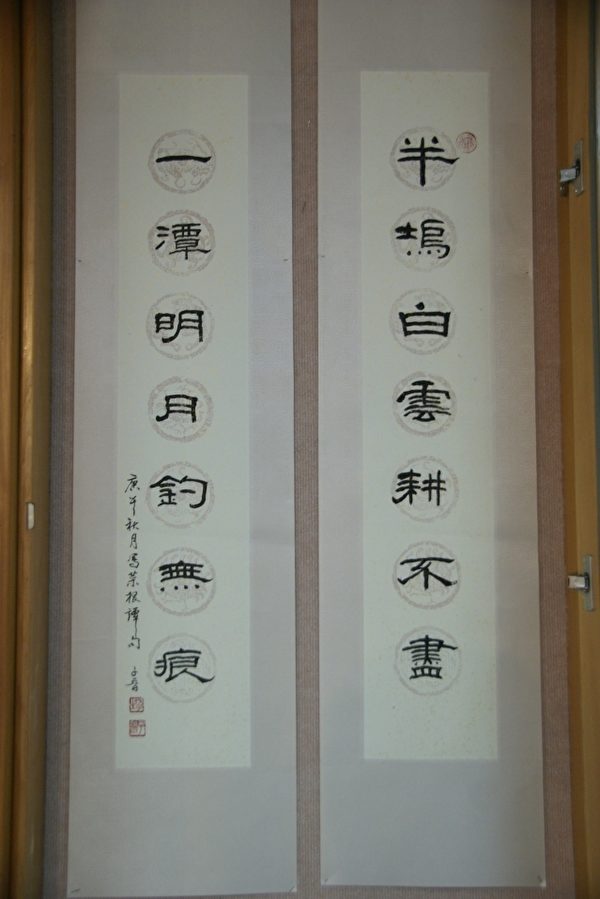 半塢白雲耕不盡
一潭明月釣無痕
庚午秋月書菜根譚句